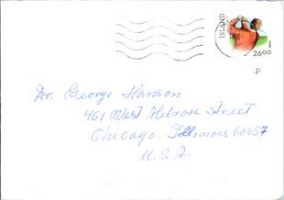 ÍSLAND
2600
Dr. George Hanson
461 West Melrose Street
Chicago, Illinois 60657
U.S.A.